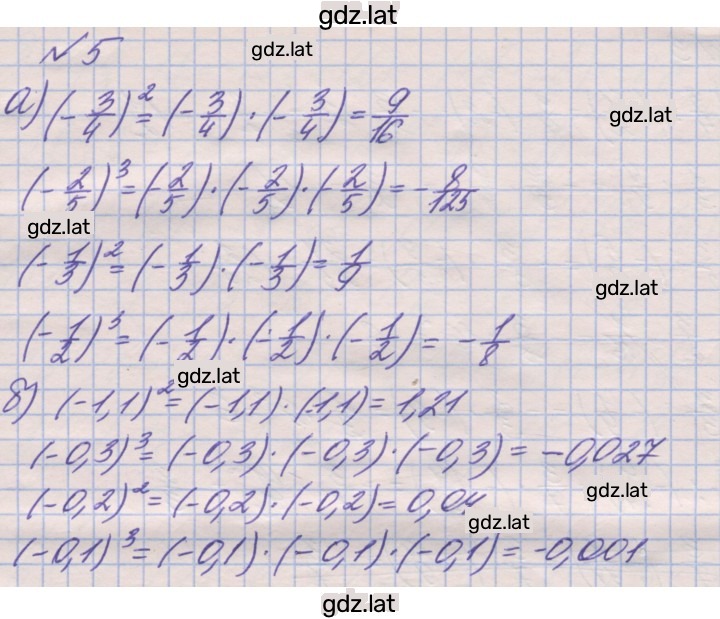 gdz.lat
№5 gdz.lat
а) (-3/4)² = (-3/4)·(-3/4) = 9/16 gdz.lat
(-2/5)³ = (-2/5)·(-2/5)·(-2/5) = -8/125
gdz.lat
(-1/3)² = (-1/3)·(-1/3) = 1/9 gdz.lat
(-1/2)³ = (-1/2)·(-1/2)·(-1/2) = -1/8
gdz.lat
б) (-1,1)² = (-1,1)·(-1,1) = 1,21
(-0,3)³ = (-0,3)·(-0,3)·(-0,3) = -0,027
(-0,2)² = (-0,2)·(-0,2) = 0,04 gdz.lat
gdz.lat
(-0,1)³ = (-0,1)·(-0,1)·(-0,1) = -0,001
gdz.lat